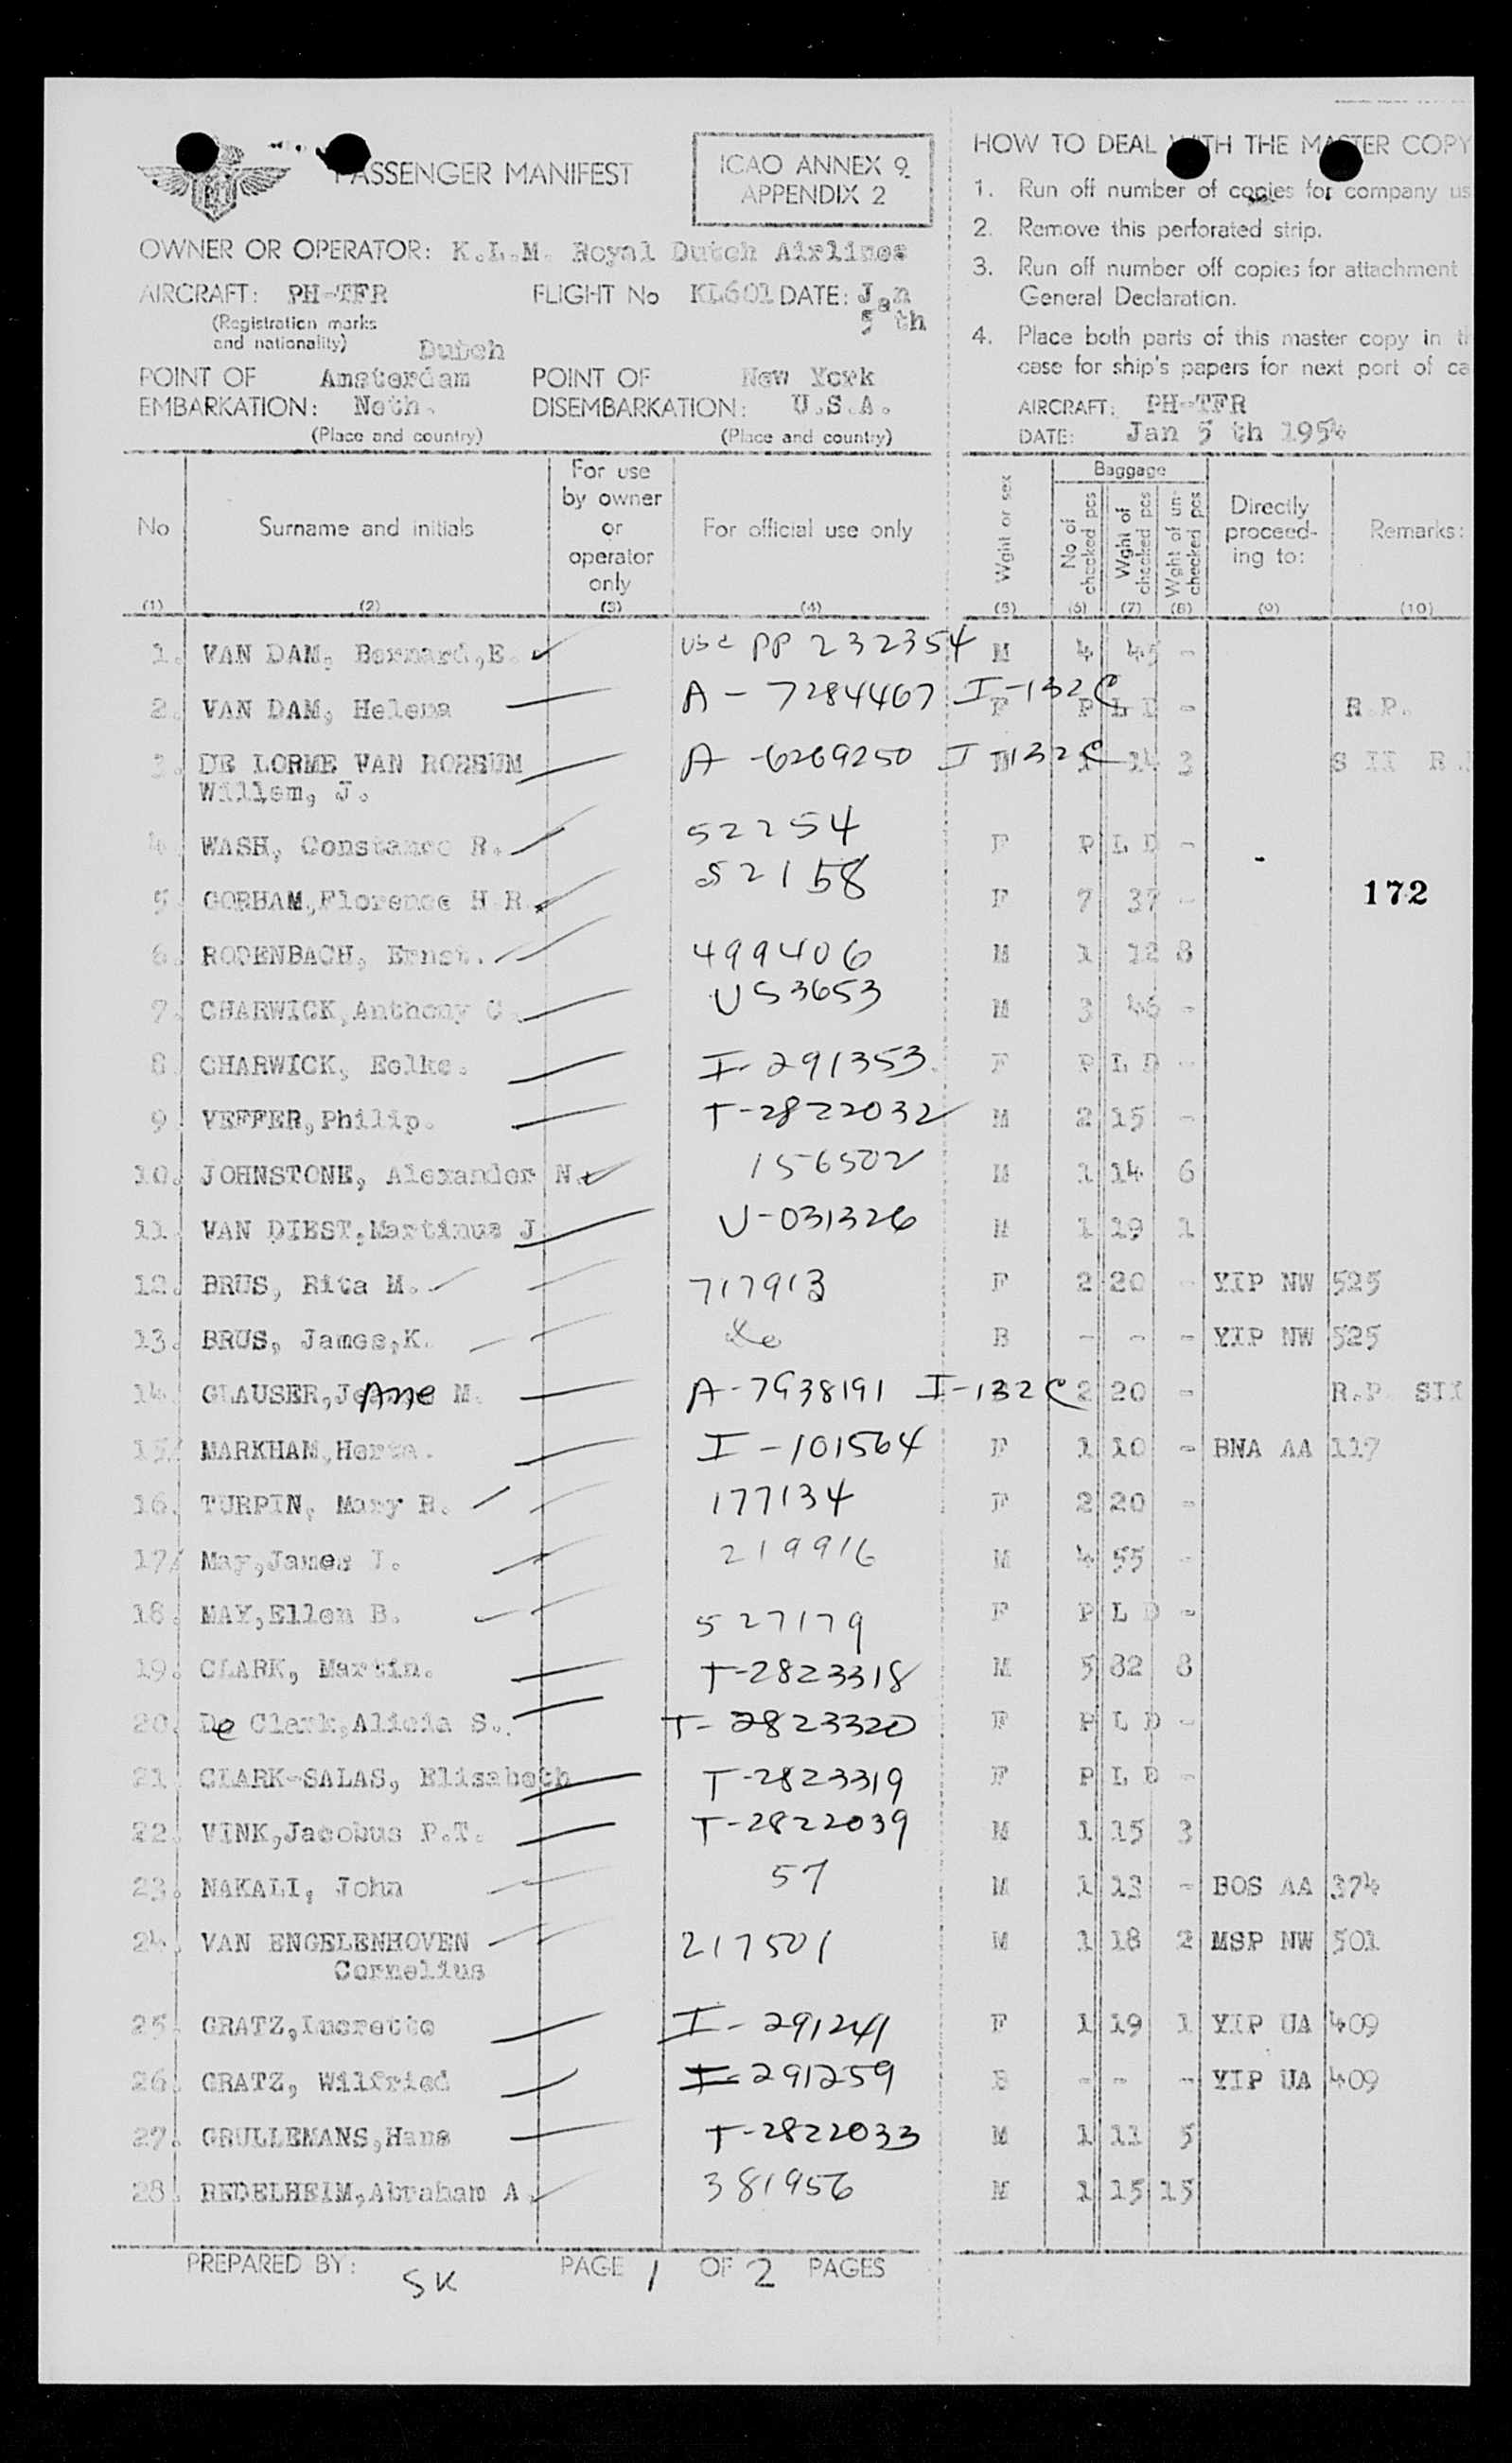 PASSENGER MANIFEST
ICAO ANNEX 9
APPENDIX 2
OWNER OR OPERATOR: K.L.M. Royal Dutch Airlines
AIRCRAFT: PH-TFR FLIGHT No KL601 DATE: Jan 5 th
(Registration marks
and nationality) Dutch
POINT OF Amsterdam POINT OF New York
EMBARKATION: Neth. DISEMBARKATION: U.S.A.
(Place and country) (Place and country)
HOW TO DEAL WITH THE MASTER COPY
1. Run off number of copies for company us
2. Remove this perforated strip.
3. Run off number off copies for attachment
General Declaration.
4. Place both parts of this master copy in t
case for ship's papers for next port of ca
AIRCRAFT: PH-TFR
DATE: Jan 5 th 1954
No Surname and initials For use by owner or operator only For official use only Wght or sex Baggage No of checked pcs Wght of checked pcs Wght of un-checked pcs Directly proceed-ing to: Remarks:
(1) (2) (3) (4) (5) (6) (7) (8) (9) (10)
1. VAN DAM, Bernard,E. PP 232354 M 4 45 -
2. VAN DAM, Helena A - 7284467 I-132C F P L D - R.P.
3. DE LORME VAN ROSSUM A -6269250 I-132C 1 14 3 S II R.
Willem, J.
4. WASH, Constance R. 52254 F P L D -
5. GORHAM,Florence H R. 52158 F 7 37 -
172
6. RODENBACH, Ernst. 499406 M 1 12 8
7. CHARWICK,Anthony C. US3653 M 3 46 -
8. CHARWICK, Eelke. I-291353 F P L D -
9. VEFFER,Philip. T-2822032 M 2 15 -
10. JOHNSTONE, Alexander N. 156502 M 1 14 6
11. VAN DIEST,Martinus J. U-031326 M 1 19 1
12. BRUS, Rita M. 717913 F 2 20 - YIP NW 525
13. BRUS, James,K. do B - - - YIP NW 525
14. GLAUSER, M. A-7938191 I-132C 2 20 - R.P. SII
15. MARKHAM,Herta. I-101564 F 1 10 - BNA AA 117
16. TURPIN, Mary R. 177134 F 2 20 -
17. May,James J. 219916 M 4 55 -
18. MAY,Ellen B. 527179 F P L D -
19. CLARK, Martin. T-2823318 M 5 82 8
20. De Clark,Alicia S. T-2823320 F P L D -
21. CLARK-SALAS, Elisabeth T-2823319 F P L D -
22. VINK,Jacobus P.T. T-2822039 M 1 15 3
23. NAKALI, John 57 M 1 13 - BOS AA 374
24. VAN ENGELENHOVEN 217501 M 1 18 2 MSP NW 501
Cornelius
25. GRATZ,Lucrette I-291241 F 1 19 1 YIP UA 409
26. GRATZ, Wilfried I-291259 B - - - YIP UA 409
27. GRULLEMANS,Hans T-2822033 M 1 11 5
28. REDELHEIM,Abraham A. 381956 M 1 15 15
PREPARED BY: SK PAGE 1 OF 2 PAGES